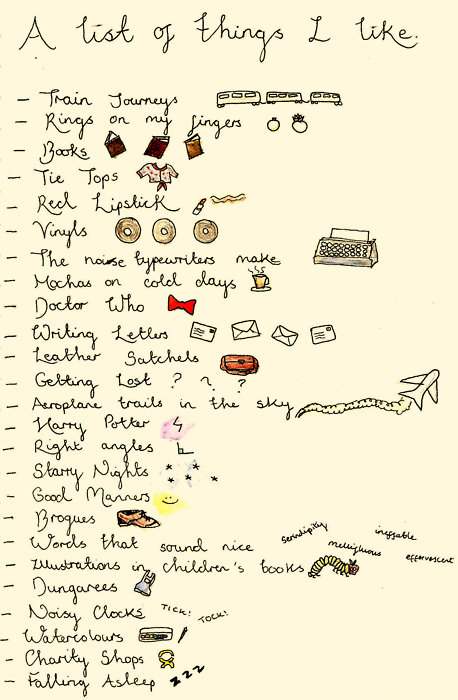 A list of things I like.
- Train Journeys
- Rings on my fingers
- Books
- Tie Tops
- Red Lipstick
- Vinyls
- The noise typewriters make
- Mochas on cold days
- Doctor Who
- Writing Letters
- Leather Satchels
- Getting Lost ? ? ?
- Aeroplane trails in the sky
- Harry Potter
- Right angles
- Starry Nights
- Good Manners
- Brogues
- Words that sound nice serendipity mellifluous ineffable effervescent
- Illustrations in children's books
- Dungarees
- Noisy Clocks TICK! TOCK!
- Watercolours
- Charity Shops
- Falling Asleep z z z